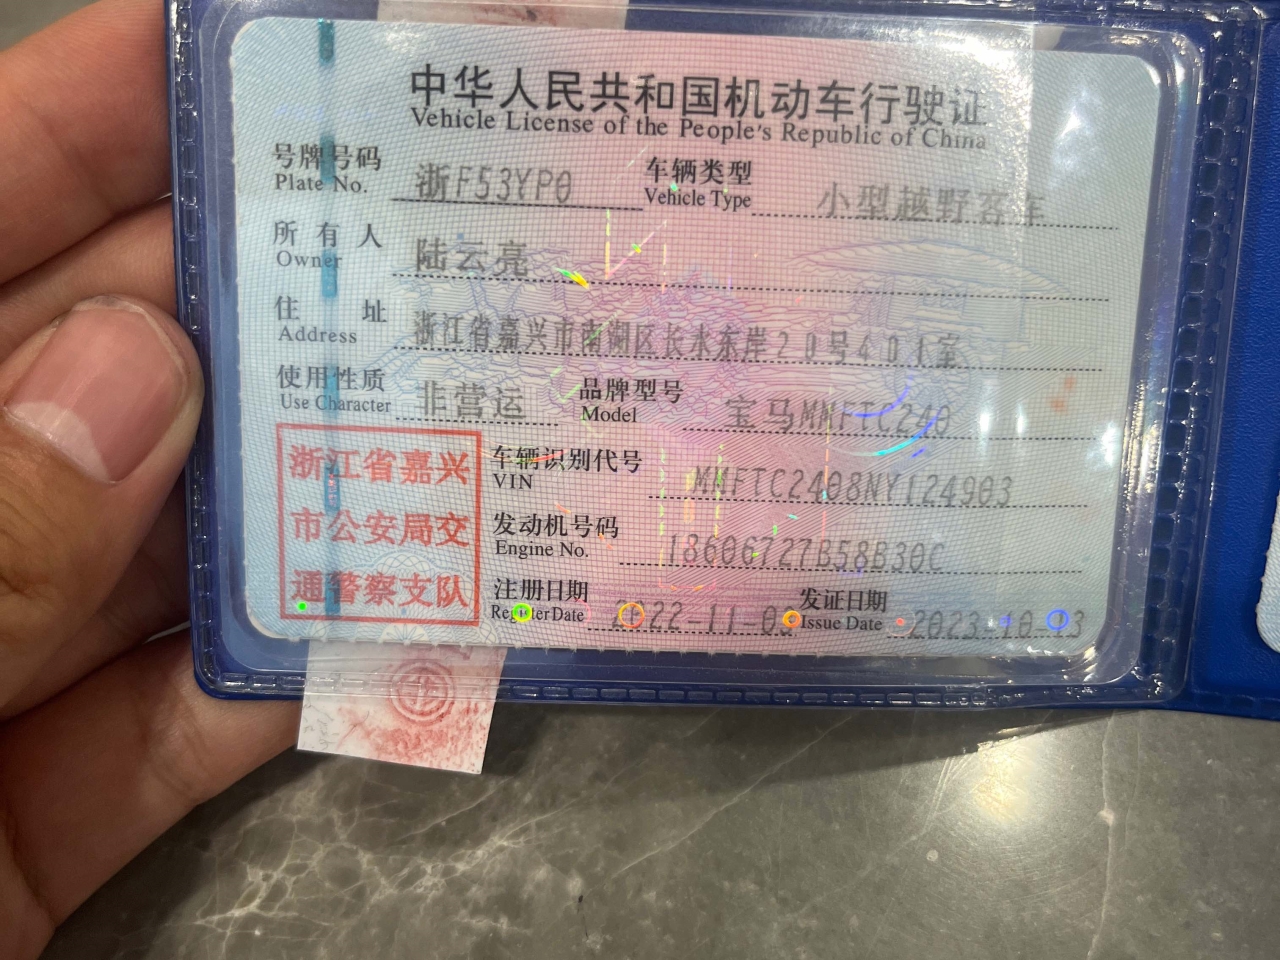 中华人民共和国机动车行驶证
Vehicle License of the People's Republic of China
号牌号码 浙F53YP0 车辆类型 小型越野客车
Plate No. Vehicle Type
所有人 陆云亮
Owner
住址 浙江省嘉兴市南湖区长水东岸20号401室
Address
使用性质 非营运 品牌型号 宝马MMFTC240
Use Character Model
浙江省嘉兴
市公安局交
通警察支队
车辆识别代号 MMFTC2408NY124903
VIN
发动机号码 18606727B58B30C
Engine No.
注册日期 发证日期
Register Date 2022-11-03 Issue Date 2023-10-13